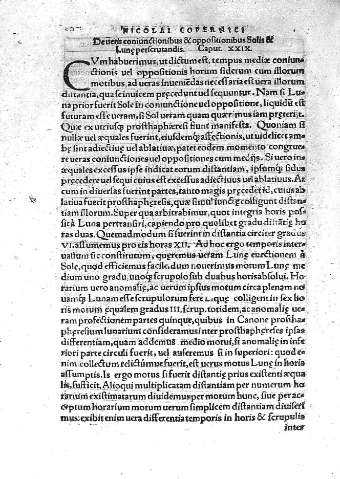 NICOLAI COPERNICI
De ueris coniunctionibus & oppositionibus Solis &
Lunę perscrutandis. Caput. XXIX.
CVm habuerimus, ut dictum est, tempus mediæ coniun-
ctionis uel oppositionis horum siderum cum illorum
motibus, ad ueras inueniendas necessaria est uera illorum
distantia, qua se inuicem præcedunt uel sequuntur. Nam si Lu
na prior fuerit Sole in coniunctione uel oppositione, liquidũ est
futuram esse ueram, si Sol ueram quam quærimus iam præterijt.
Quæ ex utriusque prosthaphæresi fiunt manifesta. Quoniam si
nullæ uel æquales fuerint, eiusdemque affectionis, ut uidelicet am-
bæ sint adiectiuæ uel ablatiuæ, patet eodem momento congrue
re ueras coniunctiones uel oppositiones cum medijs. Si uero in-
æquales excessus ipse indicat eorum distantiam, ipsumque sidus
præcedere uel sequi cuius est excessus adiectiuus uel ablatiuus. At
cum in diuersas fuerint partes, tanto magis præcedet id, cuius ab
latiua fuerit prosthaphæresis, quæ simul iunctæ colligunt distan
tiam illorum. Super qua arbitrabimur, quot integris horis pos-
sit à Luna pertransiri, capiendo pro quolibet gradu distantiæ ho
ras duas. Quemadmodum si fuerint in distantia circiter gradus
VI. assumemus pro eis horas XII. Ad hoc ergo temporis inter-
uallum sic constitutum, quæremus ueram Lunæ euectionem à
Sole, quod efficiemus facile, dum nouerimus motum Lunę me
dium uno gradu, unoque scrupulo sub duabus horis absolui. Ho
rarium uero anomaliæ, ac uerum ipsius motum circa plenam no
uamque Lunam esse scrupulorum fere L. quæ colligent in sex ho
ris motum æqualem gradus III. scrup. totidem, ac anomaliæ ue-
ram profectionem partes quinque, quibus in Canone prostha-
phæresium lunarium consideramus inter prosthaphæreses ipsas
differentiam, quam addemus medio motui, si anomalia in infe
riori parte circuli fuerit, uel auferemus si in superiori: quod e-
nim collectum relictumue fuerit, est uerus motus Lunæ in horis
assumptis. Is ergo motus si fuerit distantiæ prius existenti æqua
lis, sufficit. Alioqui multiplicatam distantiam per numerum ho
rarum existimatarum diuidemus per motum hunc, siue per ac-
ceptum horarium motum uerum simplicem distantiam diuiseri
mus. exibit enim uera differentia temporis in horis & scrupulis
inter